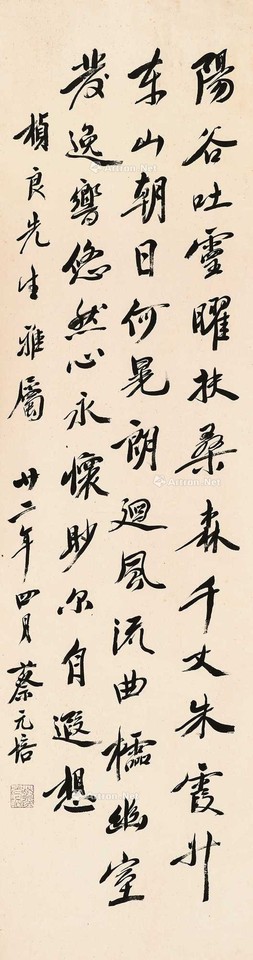 陽谷吐靈曜扶桑森千丈朱霞升
東山朝日何晃朗迴風流曲櫺幽室
發逸響悠然心永懷眇尔自遐想
楨良先生雅屬 廿二年四月 蔡元培
Artron.Net